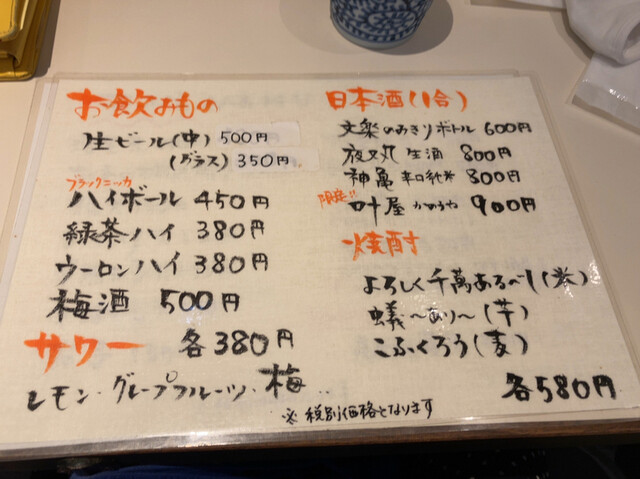 お飲みもの
生ビール(中) 500円
(グラス) 350円
ブラックニッカ
ハイボール 450円
緑茶ハイ 380円
ウーロンハイ 380円
梅酒 500円
サワー 各380円
レモン・グレープフルーツ・梅
日本酒(1合)
文楽のみきりボトル 600円
夜叉丸 生酒 800円
神亀 辛口純米 800円
限定!! 叶屋 かのうや 900円
焼酎
よろしく千萬あるべし(米)
蟻〜あり〜(芋)
こふくろう(麦)
各580円
※税別価格となります